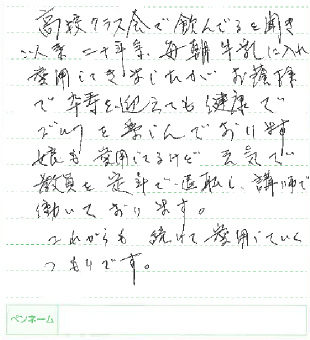 高校クラス会で飲んでると聞き
以来二十年余、毎朝牛乳に入れ
愛用してきましたが お蔭様
で卒寿を迎えても健康で
ゴルフを楽しんでおります
娘も愛用してるけど 元気で
教員を定年で退職し、講師で
働いております。
これからも 続けて愛用していく
つもりです。
ペンネーム